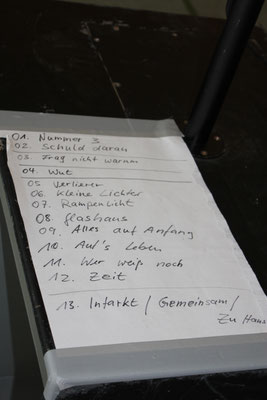 01. Nummer 3
02. Schuld daran
03. Frag nicht warum
04. Wut
05 Verlierer
06 Kleine Lichter
07. Rampenlicht
08. glashaus
09. Alles auf Anfang
10. Auf's Leben
11. Wer weiß noch
12. Zeit
13. Infarkt / Gemeinsam /
Zu Haus